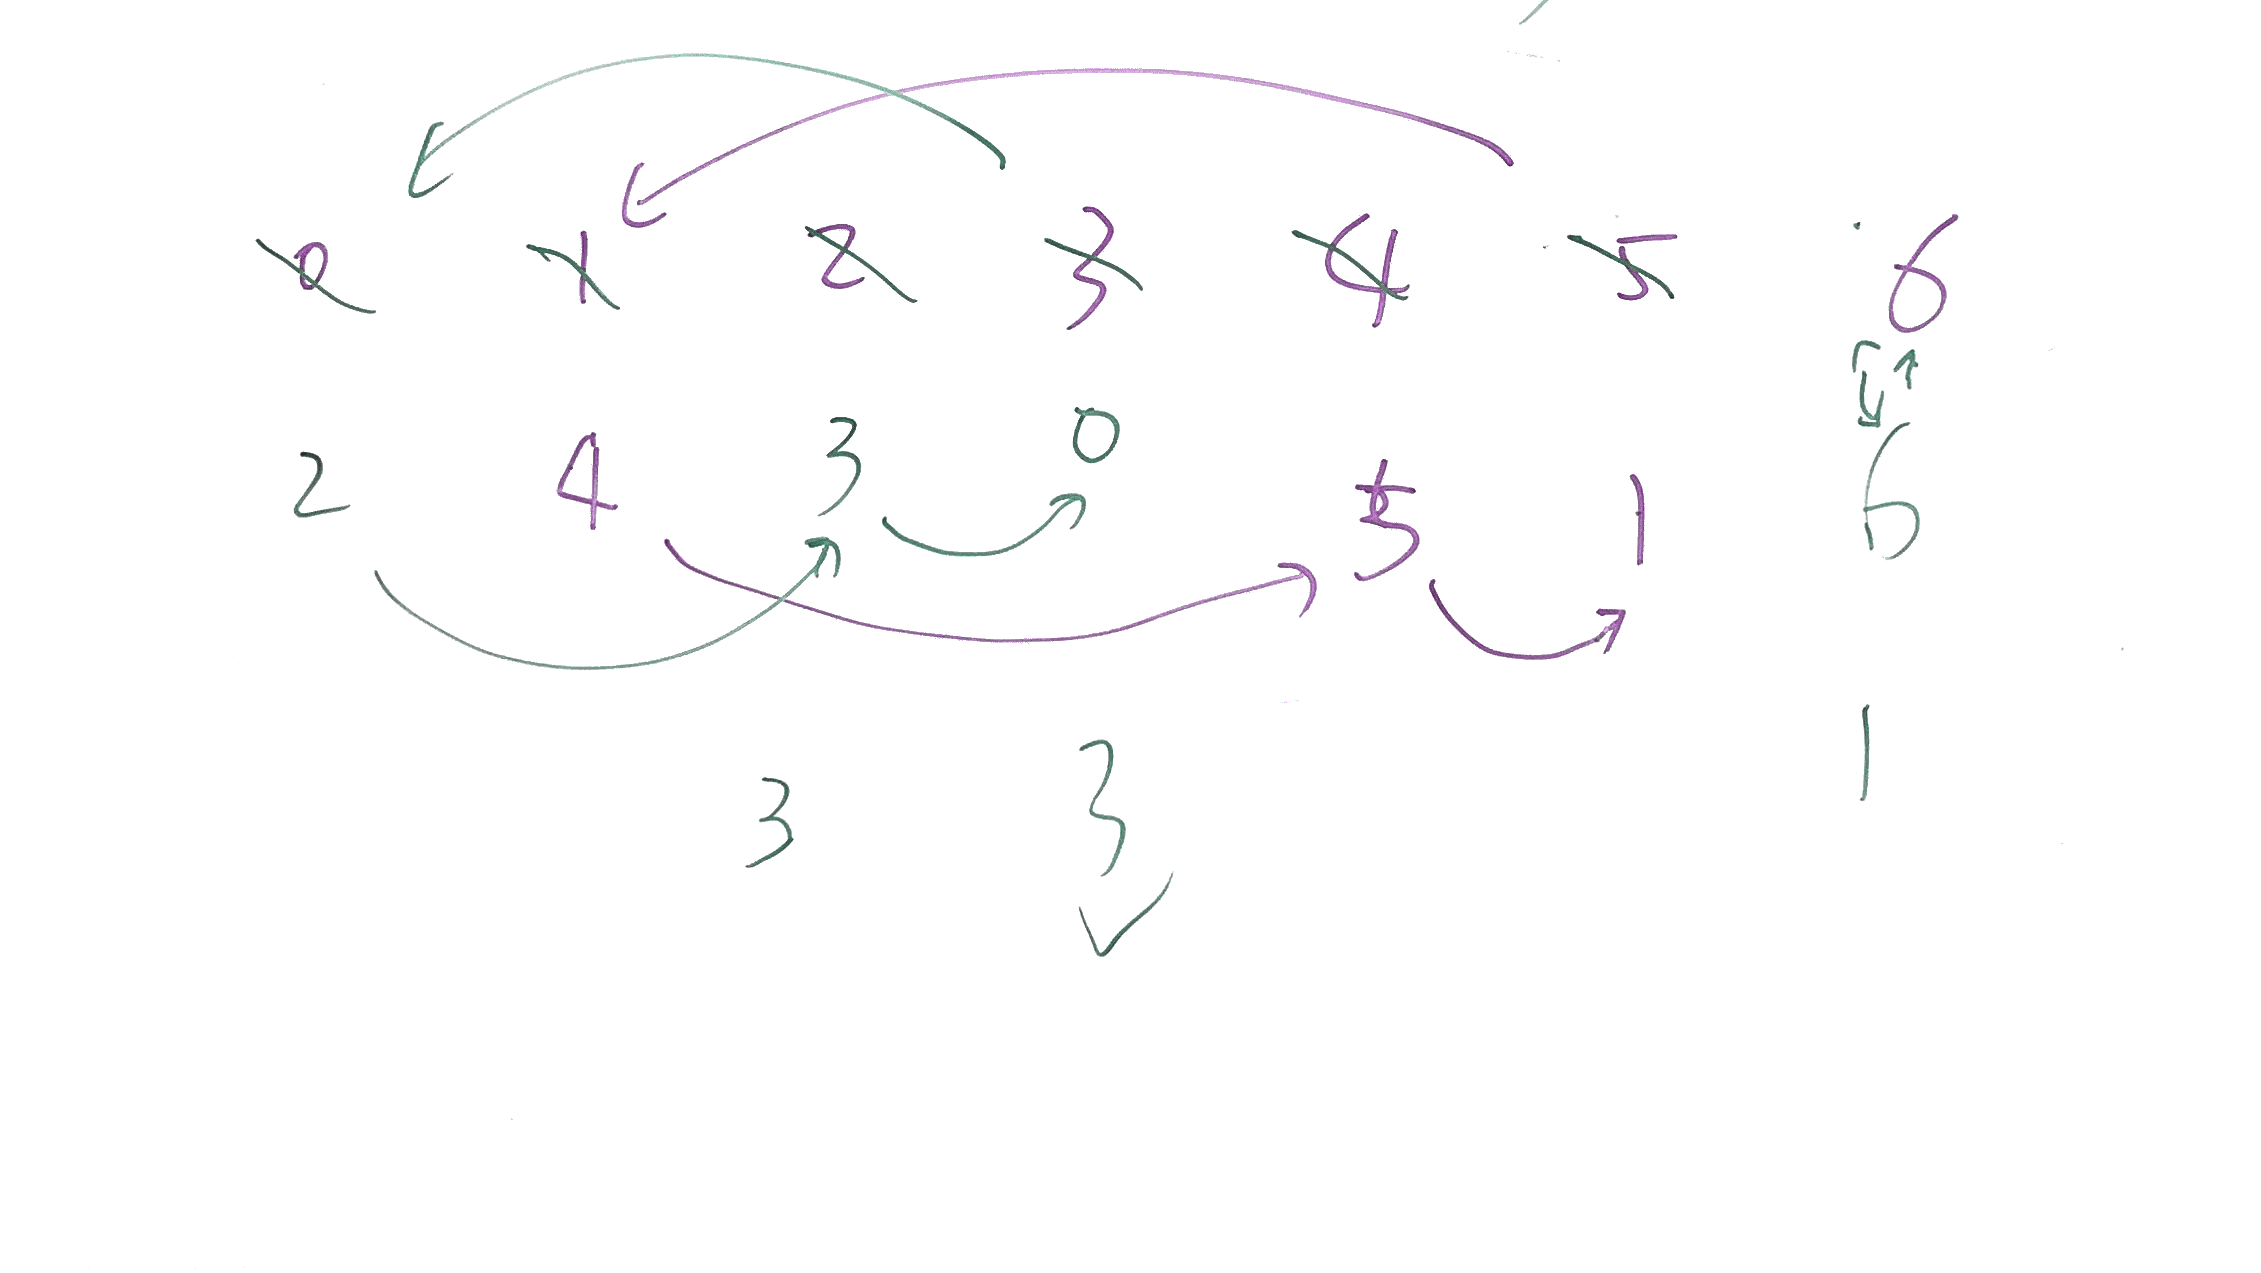 0 1 2 3 4 5 6
2 4 3 0 5 1 6
3 3 1